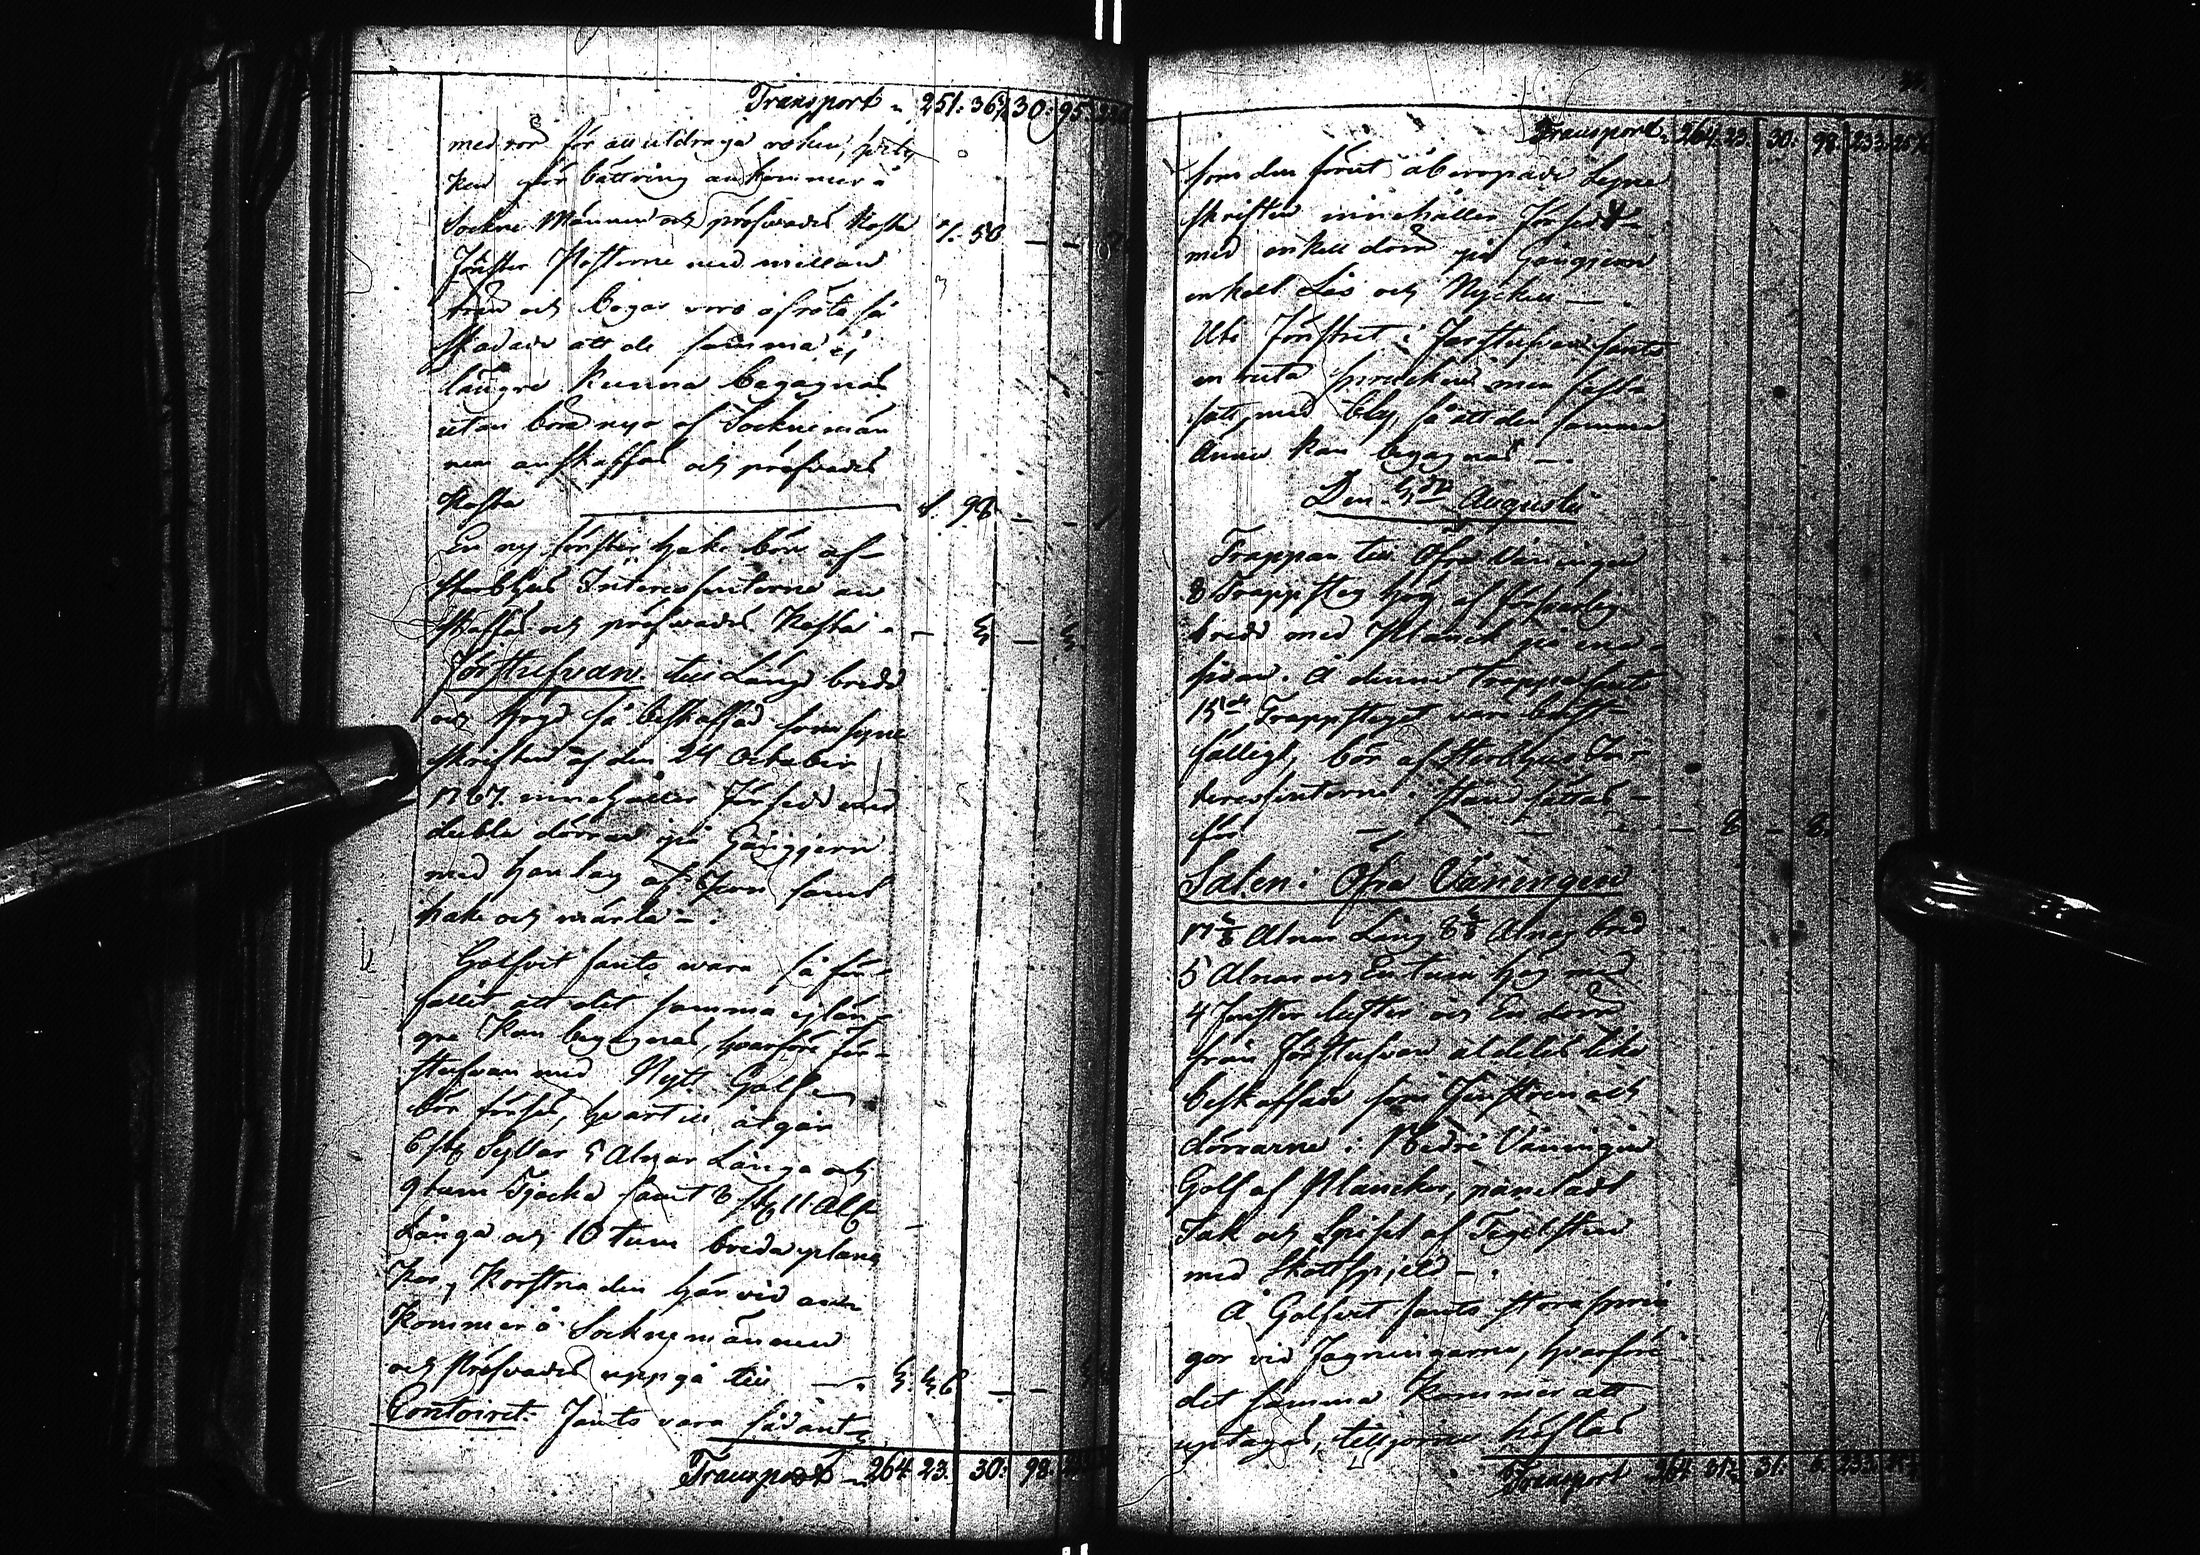 Transport 251. 36 30. 95
med rör för att utdraga röken, hvil
ken förbättring ankommer å
Sockne Männen och pröfvades Kosta 7. 50 — —
Fönster Posterne med millan
träd och bogar voro af röta så
skadade att de samma ej
längre kunna begagnas
utan böra nya af Sockne män
nen anskaffas och pröfvades
Kosta 1. 98 — —
En ny fönster hake bör af
Sterbhus Interessenterne an
skaffas och pröfvades Kosta — 3 — 3
Förstufvan till Läng bredd
och högd så beskaffad som syne
skriften af den 24 October
1767. innehåller Försedd med
dubbla dörrar på Gångjern
med handtag af Jern samt
hake och märla
Golfvet fants vara så för-
fallit att det samma ej län-
gre Kan begagnas, hvarföre För-
stufvan med Nytt Golf
bör förses, hvartill åtgår
6 st Syllar 5 Alnar Långa och
9 tum Tjocka samt 8 st 11 Aln
Långa och 10 tum breda plan
kor, Kostnaden härvid an
kommer å Socknemännen
och Pröfvades uppgå till 3. 36 — —
Contoiret Fants vara sådant
Transport 264. 23. 30. 98.
Transport 264. 23. 30. 98. 233.
som den förut åberopade Syne
skriften innehåller Försedt
med enkel dörr på Gångjern
enkelt Lås och Nyckel —
Uti Fönstret i Förstufvan fants
en ruta sprucken men fast-
satt med bly, så att den samma
ännu kan begagnas —
Den 3dn Augusti
Trappan till Öfra Våningen
8 Trappsteg hög af försvarlig
bredd med Planck på ena
sidan. Å denna trappa fants
15de Trappsteget vara bräck-
falligt, bör af Sterbhus In-
teressenterne i stånd sättas —
för — — — — 8 — 8.
Salen i Öfra Våningen
Alnar Lång Alnar bred
5 Alnar och En tum hög med
4 Fenster lufter och En dörr
från Förstufvan aldeles lika
beskaffade som Fenstren och
dörrarne i Nedre Våningen
Golf af Plancker, paneladt
Tak och Spisel af Tegelsten
med Skottspjeld —
Å Golfvet fants stora sprin
gor vid Fogningarne, hvarföre
det samma kommer att
uptagas, tillgöras höflas
Transport 264. 31. 6. 233.